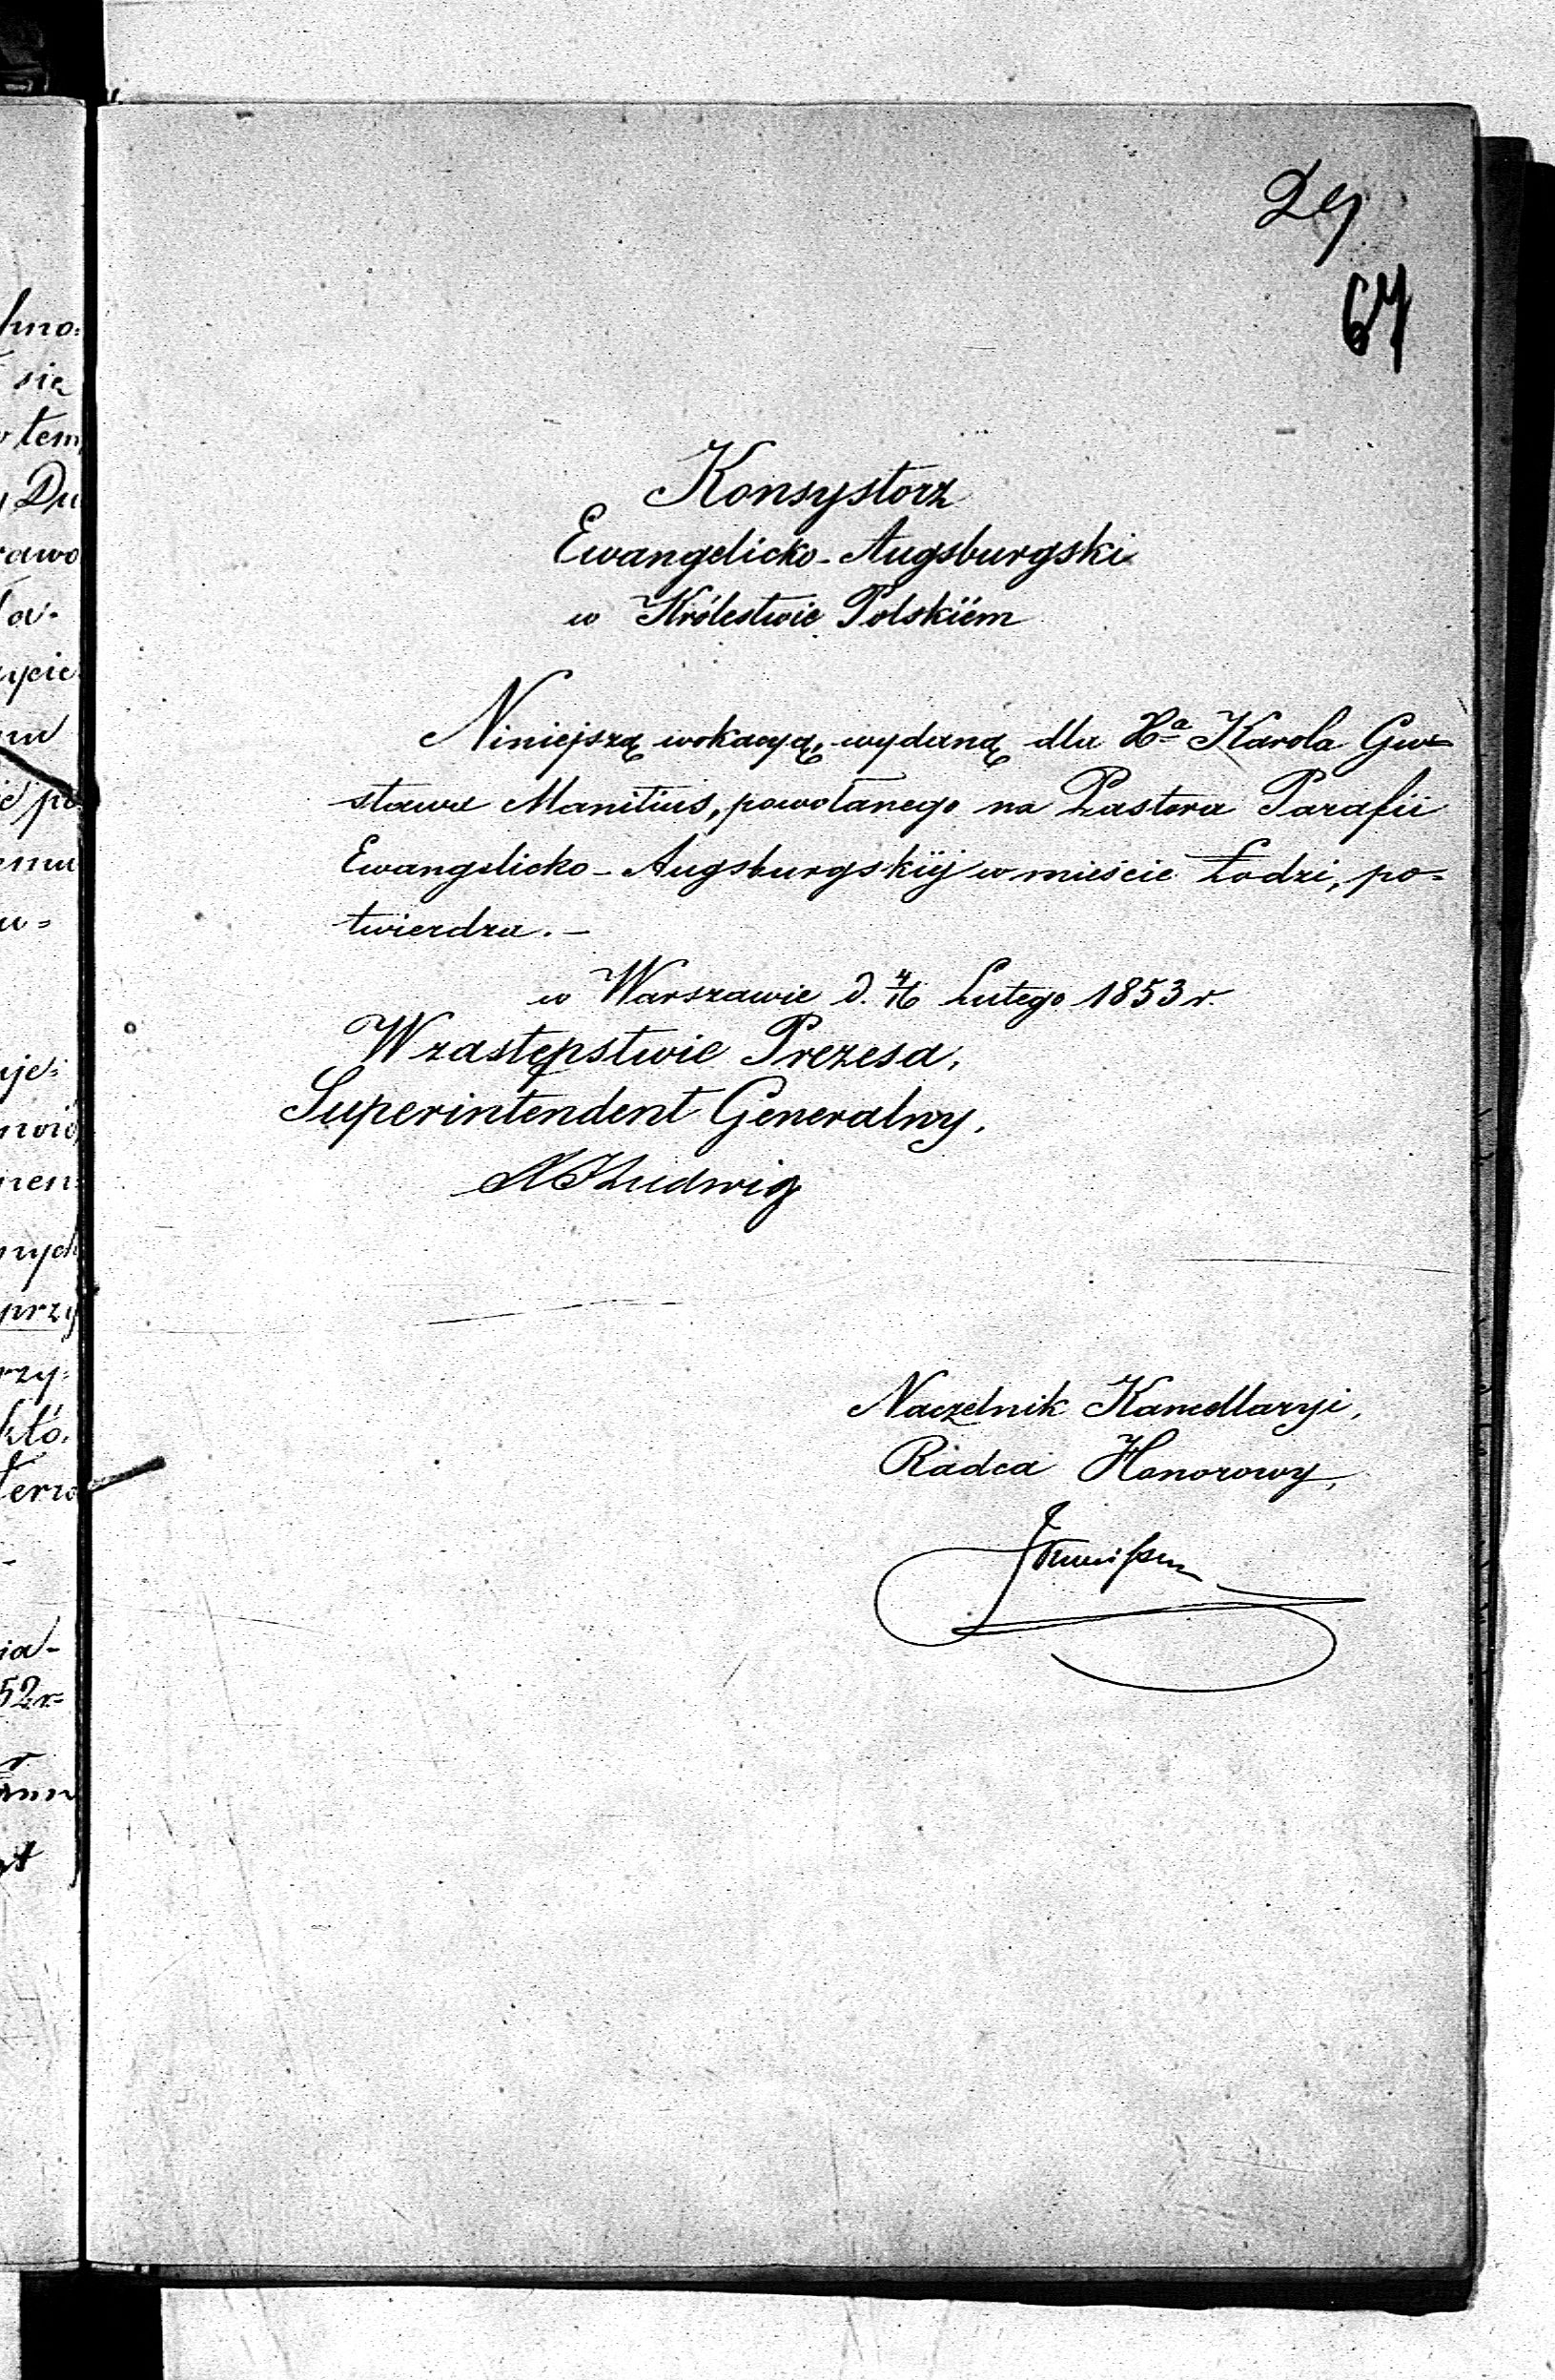 29
67
Konsystorz
Ewangelicko-Augsburgski
w Królestwie Polskiem
Niniejszą wokacyą, wydaną dla Xa Karola Gu=
stawa Manitius, powołanego na Pastora Parafii
Ewangelicko-Augsburgskiéj w mieście Łodzi, po=
twierdza.—
w Warszawie d. 4/16 Lutego 1853 r.
W zastępstwie Prezesa,
Superintendent Generalny,
Ludwig
Naczelnik Kancellaryi,
Radca Honorowy,
się
tem
Du
rawo
ycie
emu
u=
nych
przy
rzy=
któ
52 r=